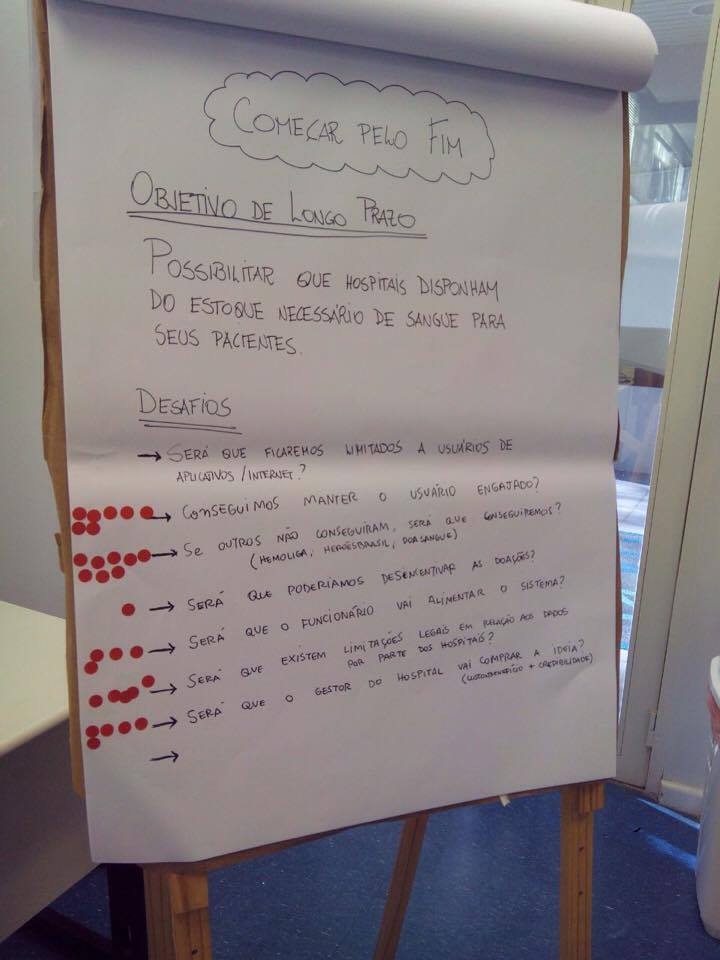 COMEÇAR PELO FIM
OBJETIVO DE LONGO PRAZO
POSSIBILITAR QUE HOSPITAIS DISPONHAM
DO ESTOQUE NECESSÁRIO DE SANGUE PARA
SEUS PACIENTES.
DESAFIOS
→ SERÁ QUE FICAREMOS LIMITADOS A USUÁRIOS DE
APLICATIVOS/INTERNET?
→ CONSEGUIMOS MANTER O USUÁRIO ENGAJADO?
→ SE OUTROS NÃO CONSEGUIRAM, SERÁ QUE CONSEGUIREMOS?
(HEMOLIGA, HEROESBRASIL, DOASANGUE)
→ SERÁ QUE PODERÍAMOS DESINCENTIVAR AS DOAÇÕES?
→ SERÁ QUE O FUNCIONÁRIO VAI ALIMENTAR O SISTEMA?
→ SERÁ QUE EXISTEM LIMITAÇÕES LEGAIS EM RELAÇÃO AOS DADOS
POR PARTE DOS HOSPITAIS?
→ SERÁ QUE O GESTOR DO HOSPITAL VAI COMPRAR A IDEIA?
(CUSTO/BENEFÍCIO + CREDIBILIDADE)
→